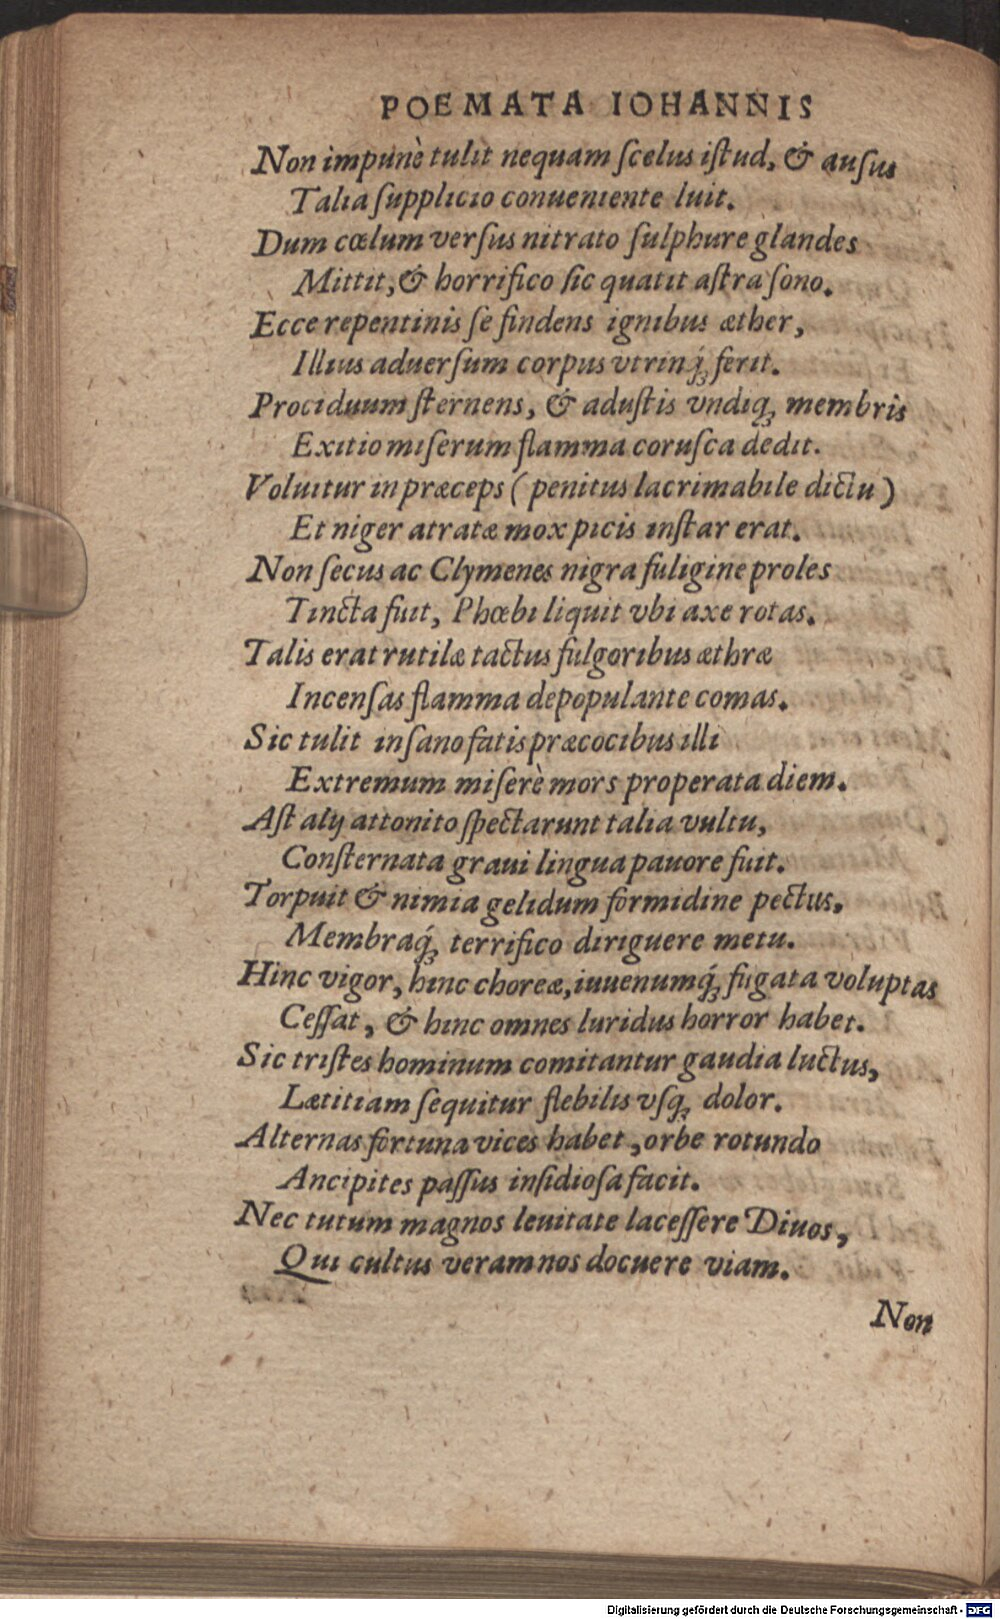 POEMATA IOHANNIS
Non impunè tulit nequam ſcelus iſtud, & auſus
Talia ſupplicio conueniente luit.
Dum cœlum verſus nitrato ſulphure glandes
Mittit, & horrifico ſic quatit aſtra ſono.
Ecce repentinis ſe findens ignibus æther,
Illius aduerſum corpus vtrinq́ꝫ ferit.
Prociduum ſternens, & aduſtis vndiqꝫ membris
Exitio miſerum flamma coruſca dedit.
Voluitur in præceps (penitus lacrimabile dictu)
Et niger atratæ mox picis inſtar erat.
Non ſecus ac Clymenes nigra fuligine proles
Tincta fuit, Phœbi liquit vbi axe rotas.
Talis erat rutilæ tactus fulgoribus æthræ
Incenſas flamma depopulante comas.
Sic tulit inſano fatis præcocibus illi
Extremum miſerè mors properata diem.
Aſt alij attonito ſpectarunt talia vultu,
Conſternata graui lingua pauore fuit.
Torpuit & nimia gelidum formidine pectus,
Membraq́ꝫ terrifico diriguere metu.
Hinc vigor, hinc choreæ, iuuenumq́ꝫ fugata voluptas
Ceſſat, & hinc omnes luridus horror habet.
Sic triſtes hominum comitantur gaudia luctus,
Lætitiam ſequitur flebilis vſqꝫ dolor.
Alternas fortuna vices habet, orbe rotundo
Ancipites paſſus inſidioſa facit.
Nec tutum magnos leuitate laceſſere Diuos,
Qui cultus veram nos docuere viam.
Non
Digitalisierung gefördert durch die Deutsche Forschungsgemeinschaft - DFG